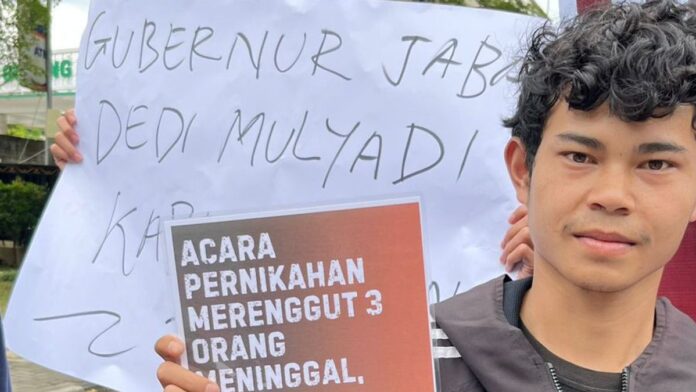 GUBERNUR JABA
DEDI MULYADI
KA
ACARA
PERNIKAHAN
MERENGGUT 3
ORANG
MENINGGAL,